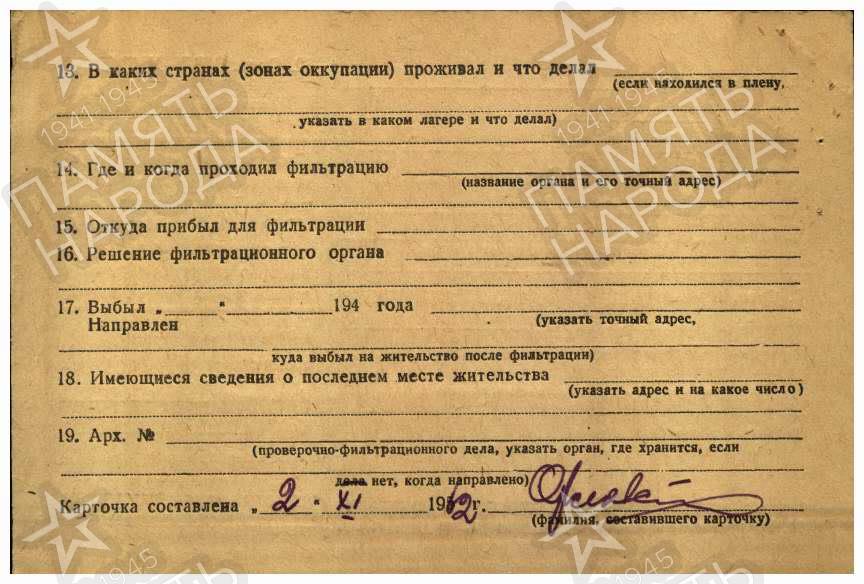 13. В каких странах (зонах оккупации) проживал и что делал
(если находился в плену,
указать в каком лагере и что делал)
14. Где и когда проходил фильтрацию
(название органа и его точный адрес)
15. Откуда прибыл для фильтрации
16. Решение фильтрационного органа
17. Выбыл „ “ 194 года
Направлен (указать точный адрес,
куда выбыл на жительство после фильтрации)
18. Имеющиеся сведения о последнем месте жительства
(указать адрес и на какое число)
19. Арх. №
(проверочно-фильтрационного дела, указать орган, где хранится, если
дела нет, когда направлено)
Карточка составлена „ 2 “ XI 1952 г.
(фамилия, составившего карточку)
ПАМЯТЬ НАРОДА
1941 1945